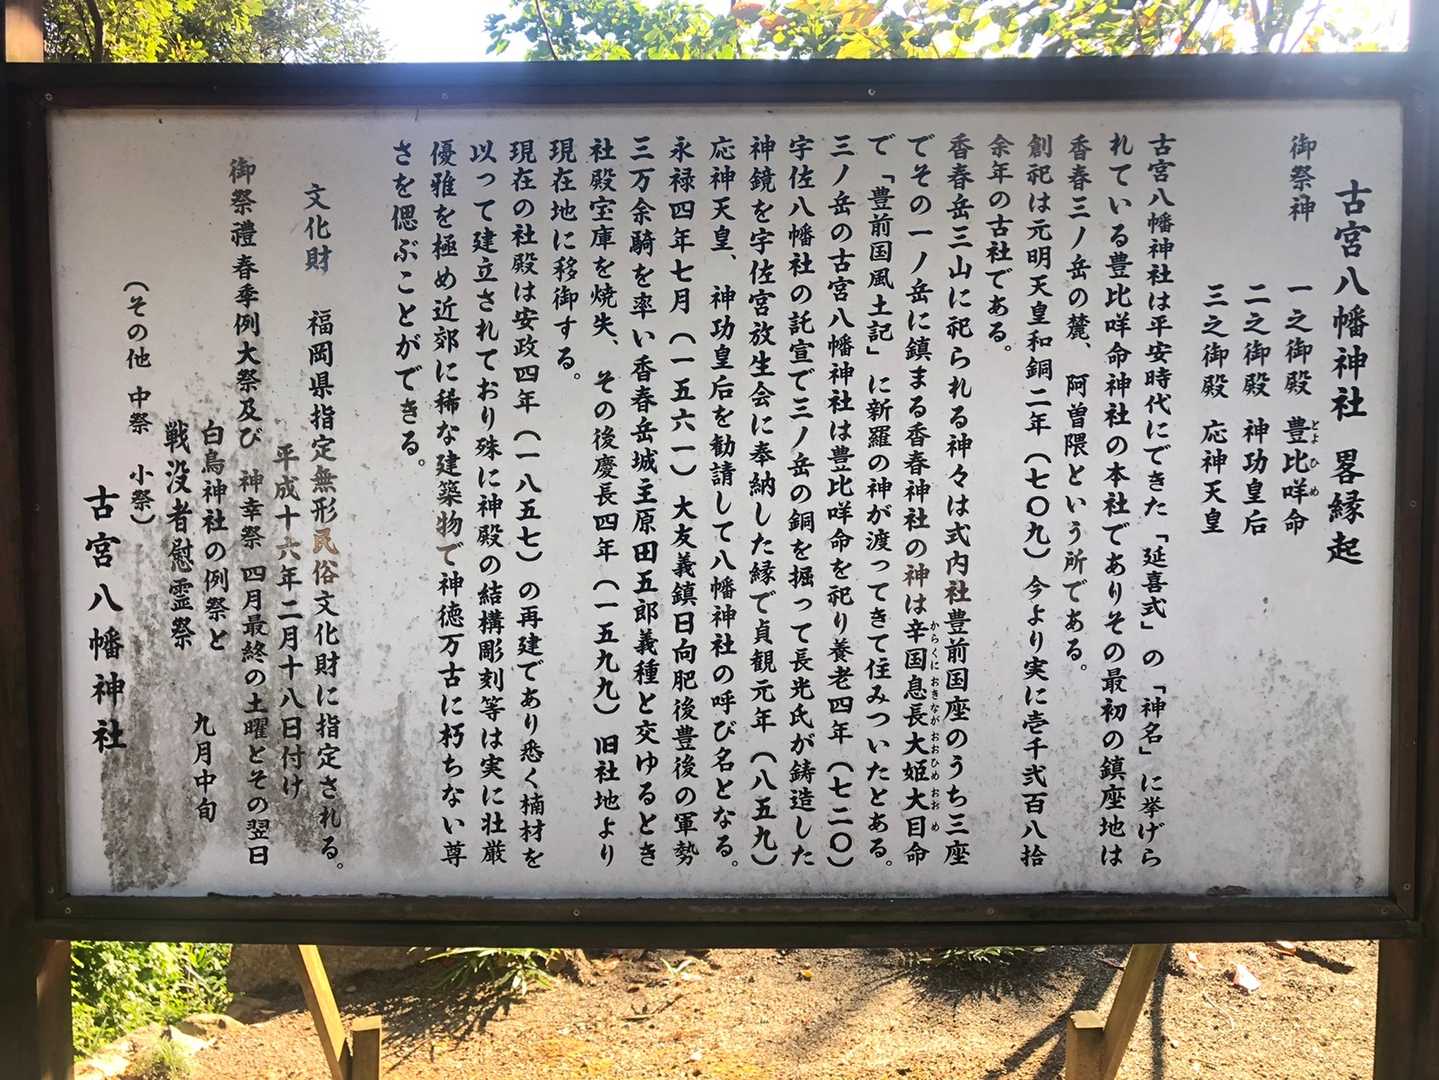 古宮八幡神社 畧縁起
御祭神
一之御殿 豊比咩命
とよひめ
二之御殿 神功皇后
三之御殿 応神天皇
古宮八幡神社は平安時代にできた「延喜式」の「神名」に挙げら
れている豊比咩命神社の本社でありその最初の鎮座地は
香春三ノ岳の麓、阿曽隈という所である。
創祀は元明天皇和銅二年（七〇九）今より実に壱千弐百八拾
余年の古社である。
香春岳三山に祀られる神々は式内社豊前国座のうち三座
でその一ノ岳に鎮まる香春神社の神は辛国息長大姫大目命
からくにおきながおおひめおおめ
で「豊前国風土記」に新羅の神が渡ってきて住みついたとある。
三ノ岳の古宮八幡神社は豊比咩命を祀り養老四年（七二〇）
宇佐八幡社の託宣で三ノ岳の銅を掘って長光氏が鋳造した
神鏡を宇佐宮放生会に奉納した縁で貞観元年（八五九）
応神天皇、神功皇后を勧請して八幡神社の呼び名となる。
永禄四年七月（一五六一）大友義鎮日向肥後豊後の軍勢
三万余騎を率い香春岳城主原田五郎義種と交ゆるとき
社殿宝庫を焼失、その後慶長四年（一五九九）旧社地より
現在地に移御する。
現在の社殿は安政四年（一八五七）の再建であり悉く楠材を
以って建立されており殊に神殿の結構彫刻等は実に壮厳
優雅を極め近郊に稀な建築物で神徳万古に朽ちない尊
さを偲ぶことができる。
文化財 福岡県指定無形民俗文化財に指定される。
平成十六年二月十八日付け
御祭禮春季例大祭及び 神幸祭 四月最終の土曜とその翌日
白鳥神社の例祭と
戦没者慰霊祭 九月中旬
（その他 中祭 小祭）
古宮八幡神社